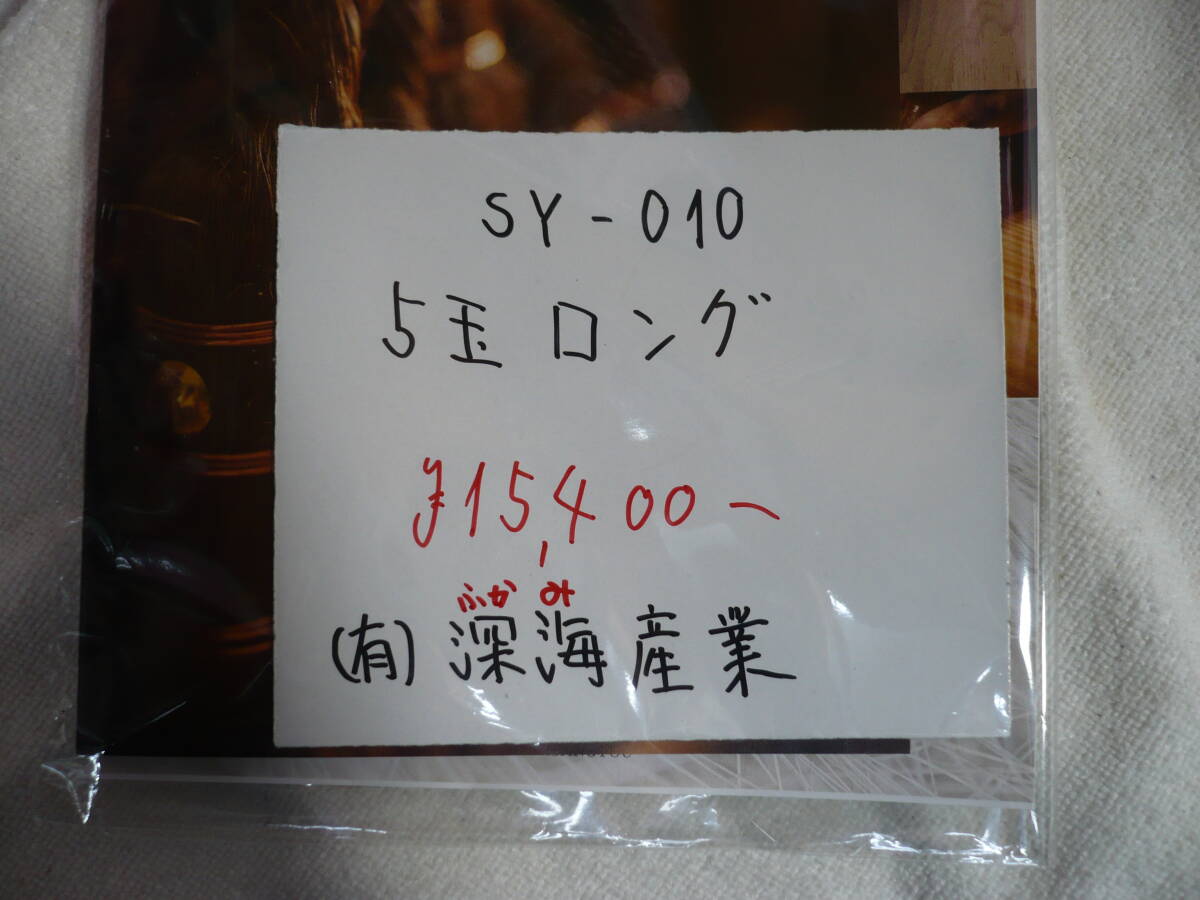 SY-010
5玉 ロング
¥15,400~
ふかみ
(有)深海産業